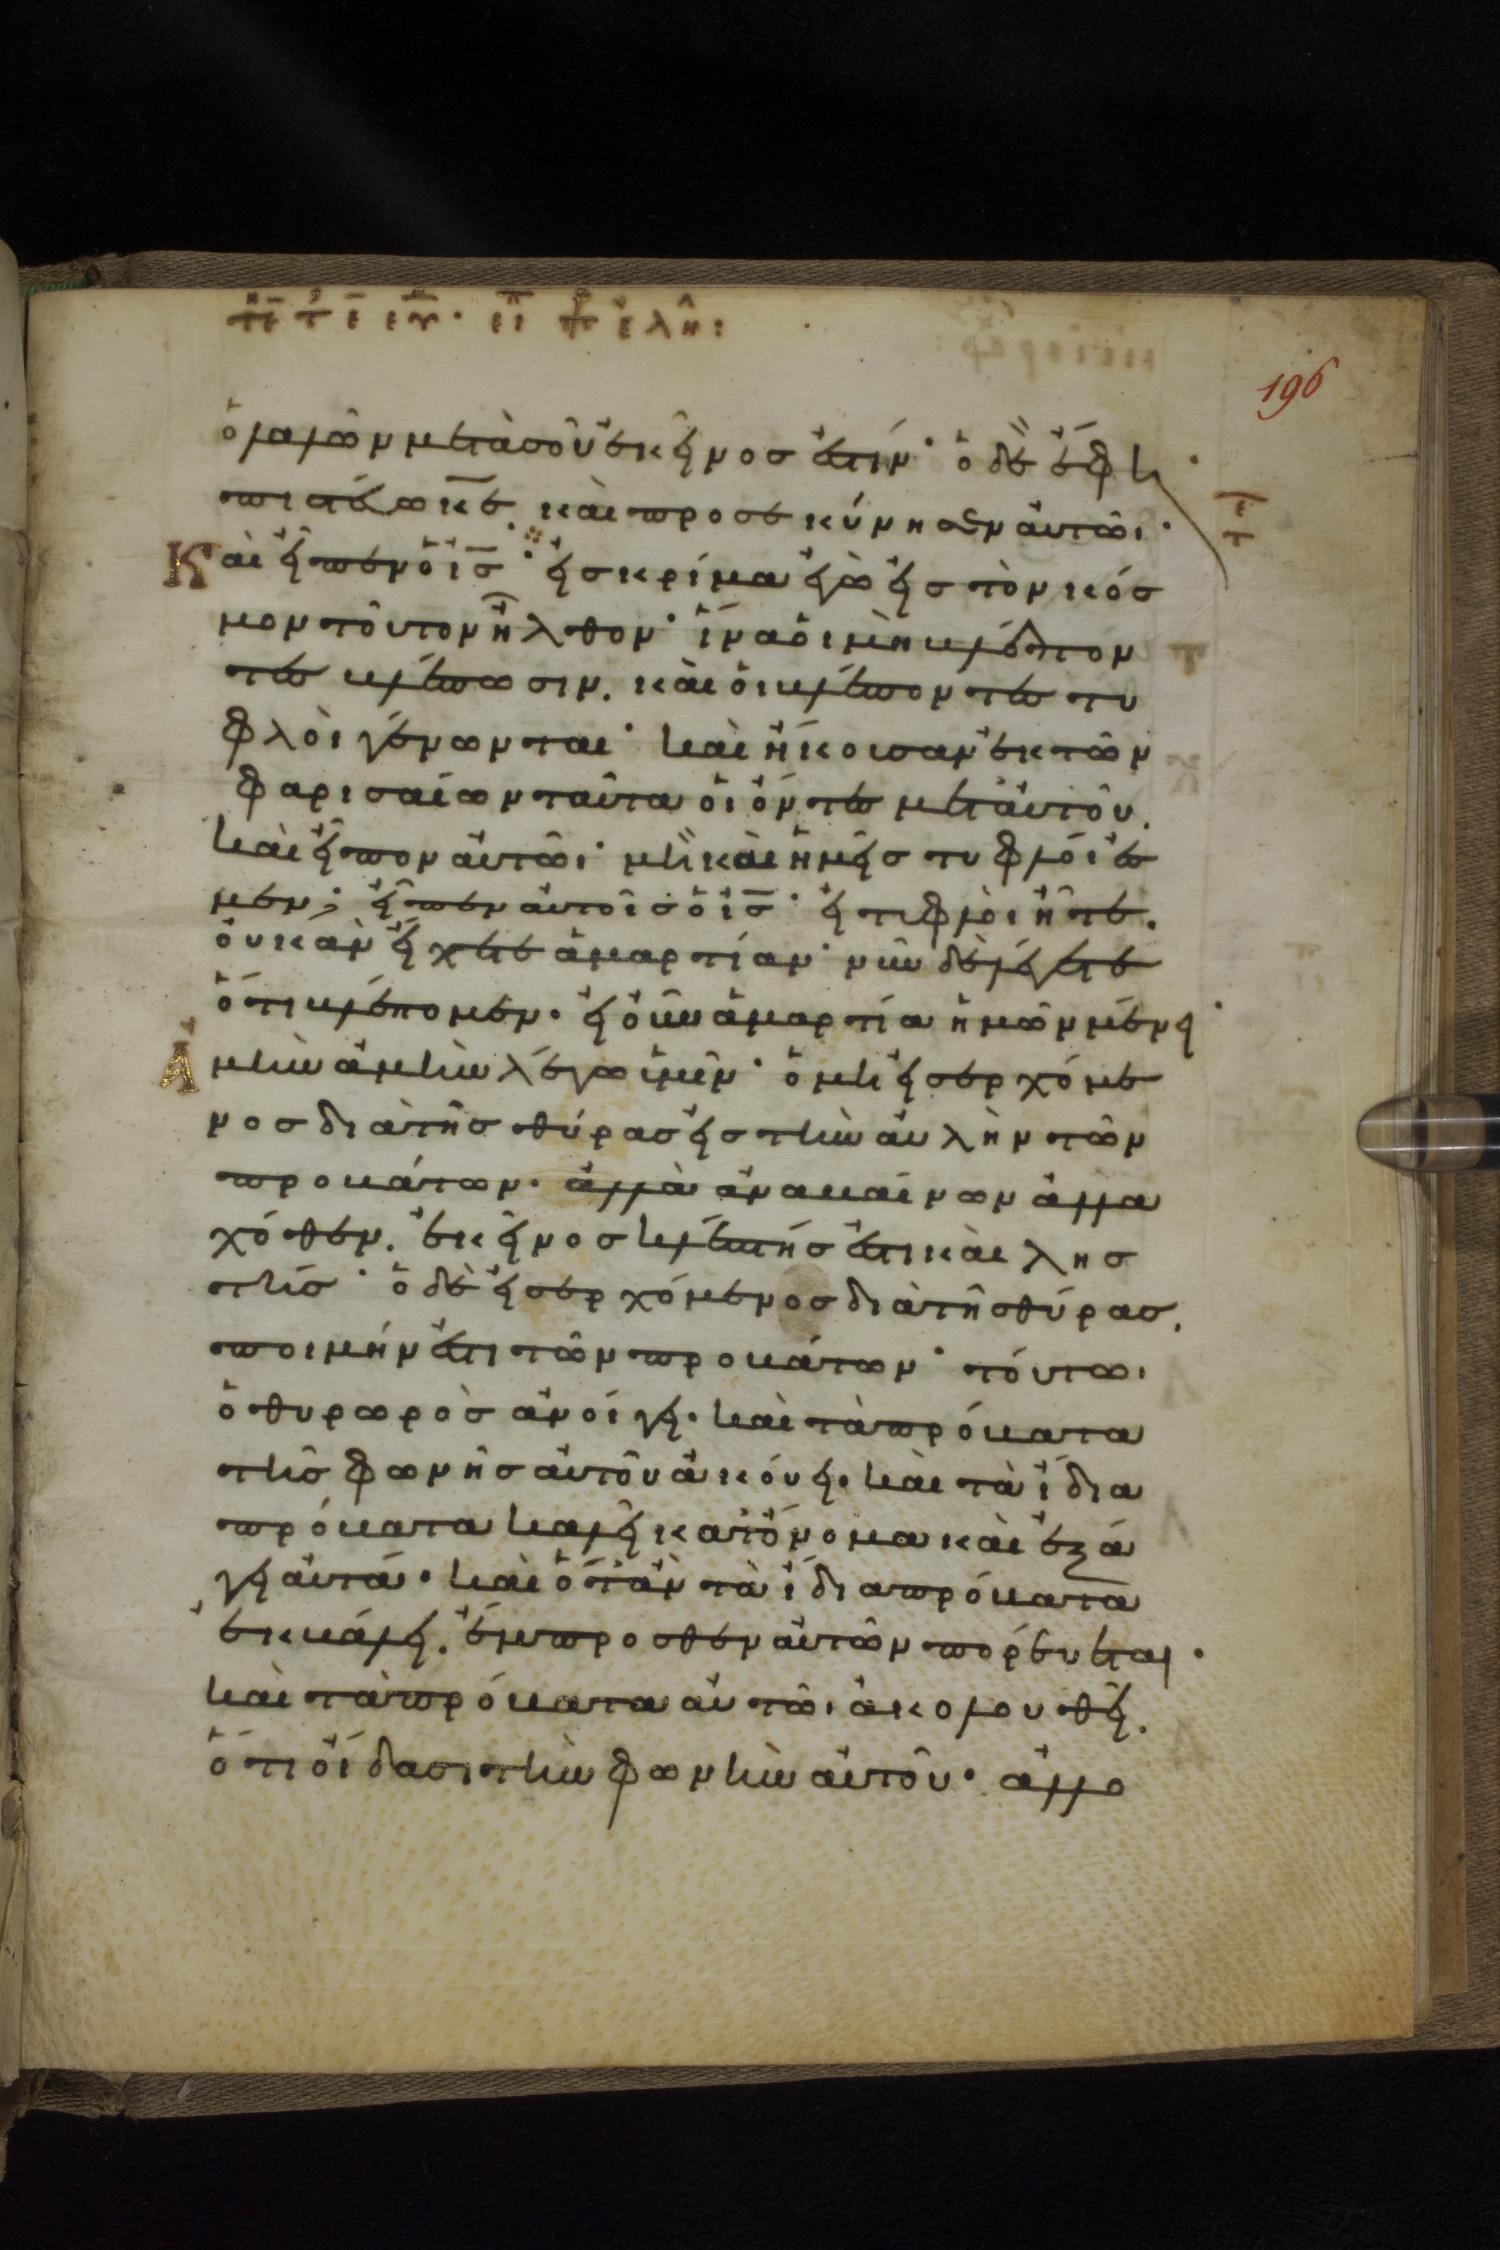 196
ὁ λαλῶν μετὰ σοῦ ἐκεῖνος ἐστίν· ὁ δὲ ἔφη·
πιστεύω κε. καὶ προσεκύνησεν αὐτῶι·
Καὶ εἶπεν ὁ ις· εἰς κρίμα ἐγὼ εἰς τὸν κόσ
μον τοῦτον ἦλθον· ἵνα οἱ μὴ βλέπον
τες βλέπωσιν. καὶ οἱ βλέποντες τυ
φλοὶ γένωνται· καὶ ἤκουσαν ἐκ τῶν
φαρισαίων ταῦτα οἱ ὄντες μετ' αὐτοῦ.
καὶ εἶπον αὐτῶι· μὴ καὶ ἡμεῖς τυφλοί ἐσ
μεν; εἶπεν αὐτοῖς ὁ ις· εἰ τυφλοὶ ἦτε.
οὐκ ἂν εἴχετε ἁμαρτίαν· νῦν δὲ λέγετε
ὅτι βλέπομεν. ἡ οὖν ἁμαρτία ἡμῶν μένει·
Ἀμὴν ἀμὴν λέγω ὑμῖν· ὁ μὴ εἰσερχόμε
νος διὰ τῆς θύρας εἰς τὴν αὐλὴν τῶν
προβάτων. ἀλλὰ ἀναβαίνων ἀλλα
χόθεν. ἐκεῖνος κλέπτης ἐστὶ καὶ λησ
τής· ὁ δὲ εἰσερχόμενος διὰ τῆς θύρας.
ποιμήν ἐστι τῶν προβάτων· τούτωι
ὁ θυρωρὸς ἀνοίγει. καὶ τὰ πρόβατα
τῆς φωνῆς αὐτοῦ ἀκούει. καὶ τὰ ἴδια
πρόβατα καλεῖ κατ' ὄνομα καὶ ἐξά
γει αὐτά. καὶ ὅταν τὰ ἴδια πρόβατα
ἐκβάλει. ἔμπροσθεν αὐτῶν πορεύεται·
καὶ τὰ πρόβατα αὐτῶι ἀκολουθεῖ.
ὅτι οἴδασι τὴν φωνὴν αὐτοῦ. ἀλλο